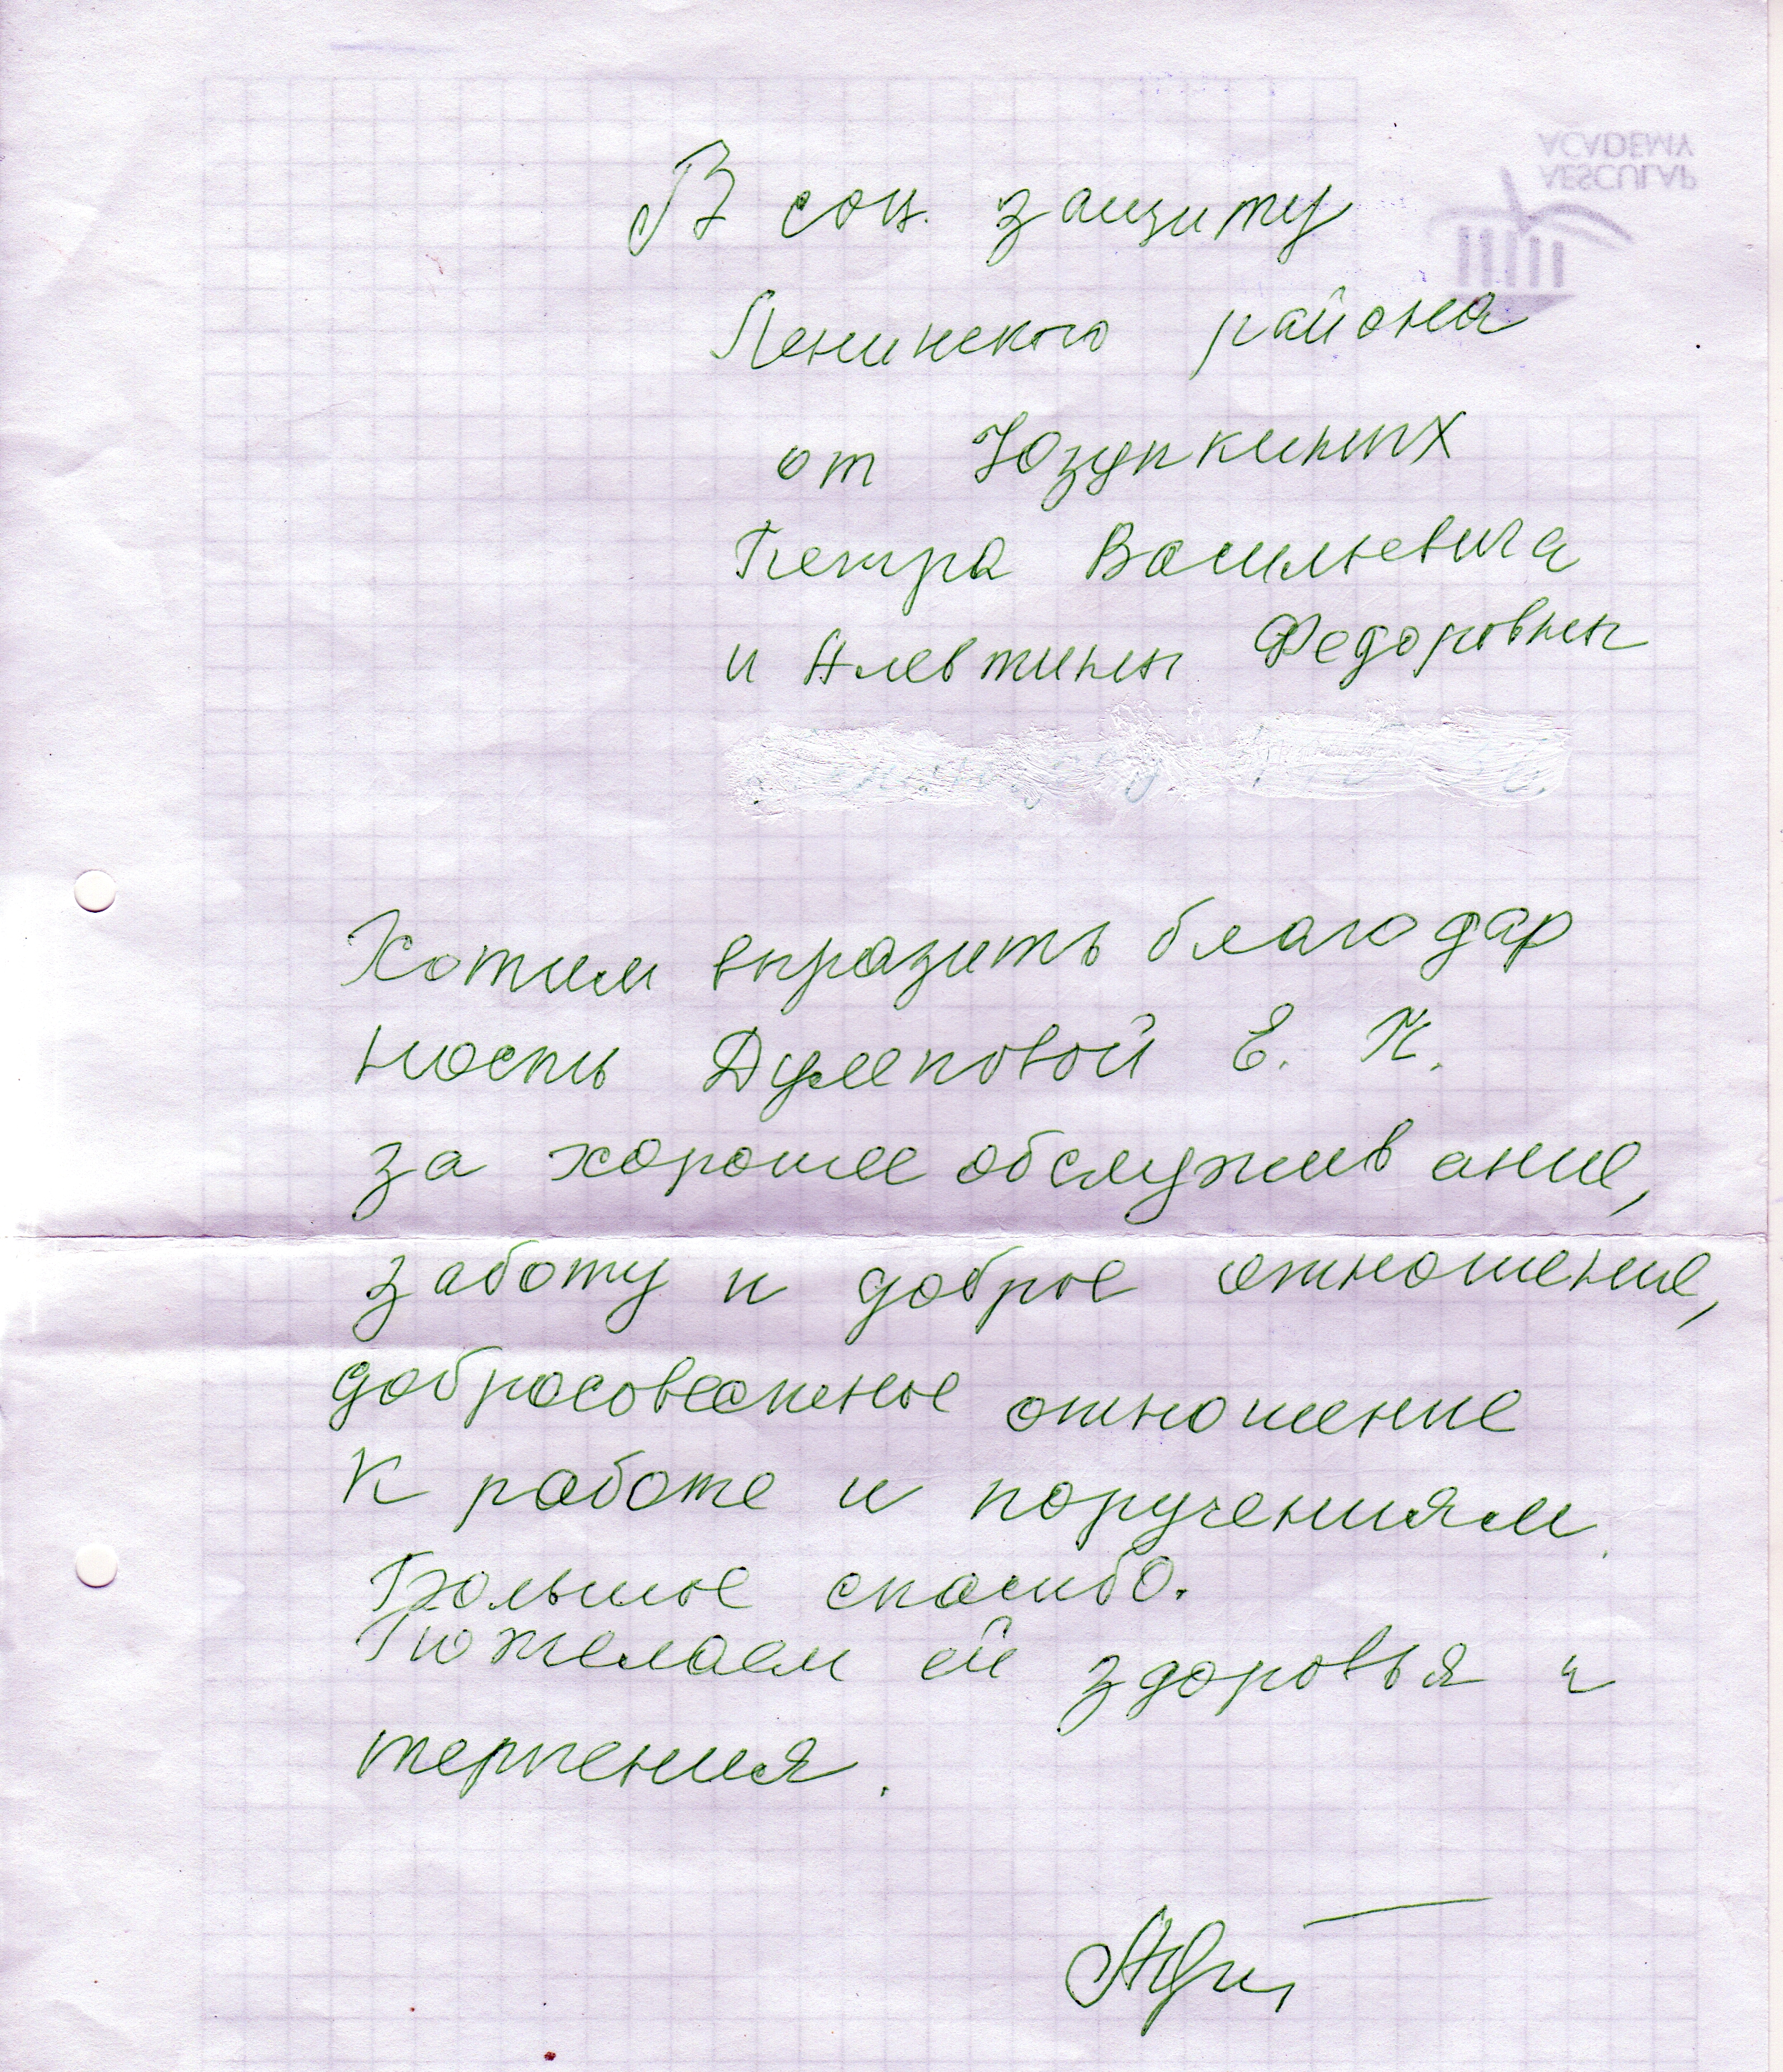 ACADEMY
AESCULAP
В соц. защиту
Ленинского района
от Юзупкиных
Петра Васильевича
и Алевтины Федоровны
Хотим выразить благодар
ность Думповой Е. К.
за хорошее обслуживание,
заботу и доброе отношение,
добросовестное отношение
к работе и поручениям.
Большое спасибо.
Пожелаем ей здоровья и
терпения.